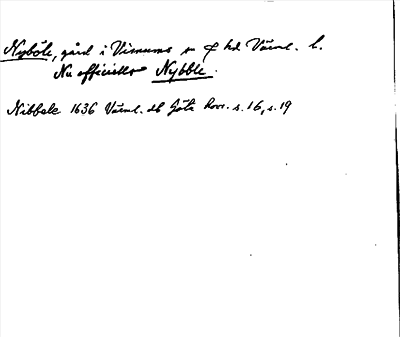 Nyböle, gård i Visnums sn o hd Värml. l.
Nu officiellt Nybble.
Nibbele 1636 Värml. db Göta hovr. s. 16, s. 19